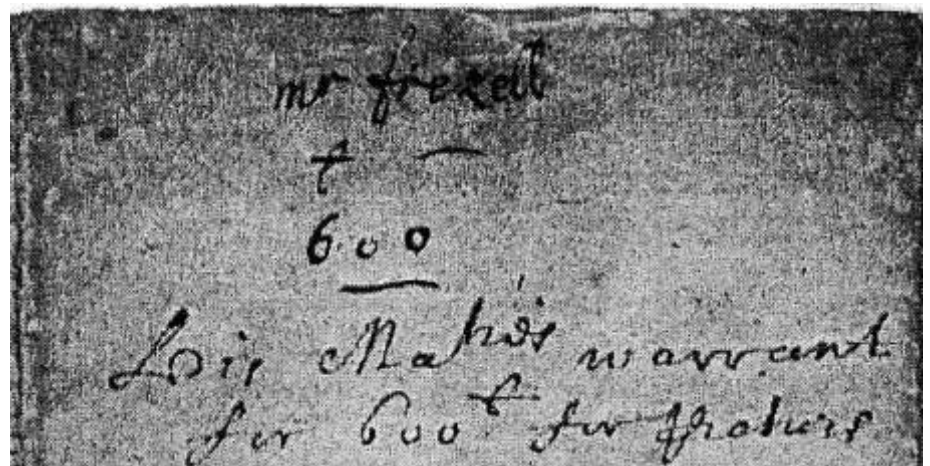 mr frezell
£
600
His Matties warrant
for 600£ for